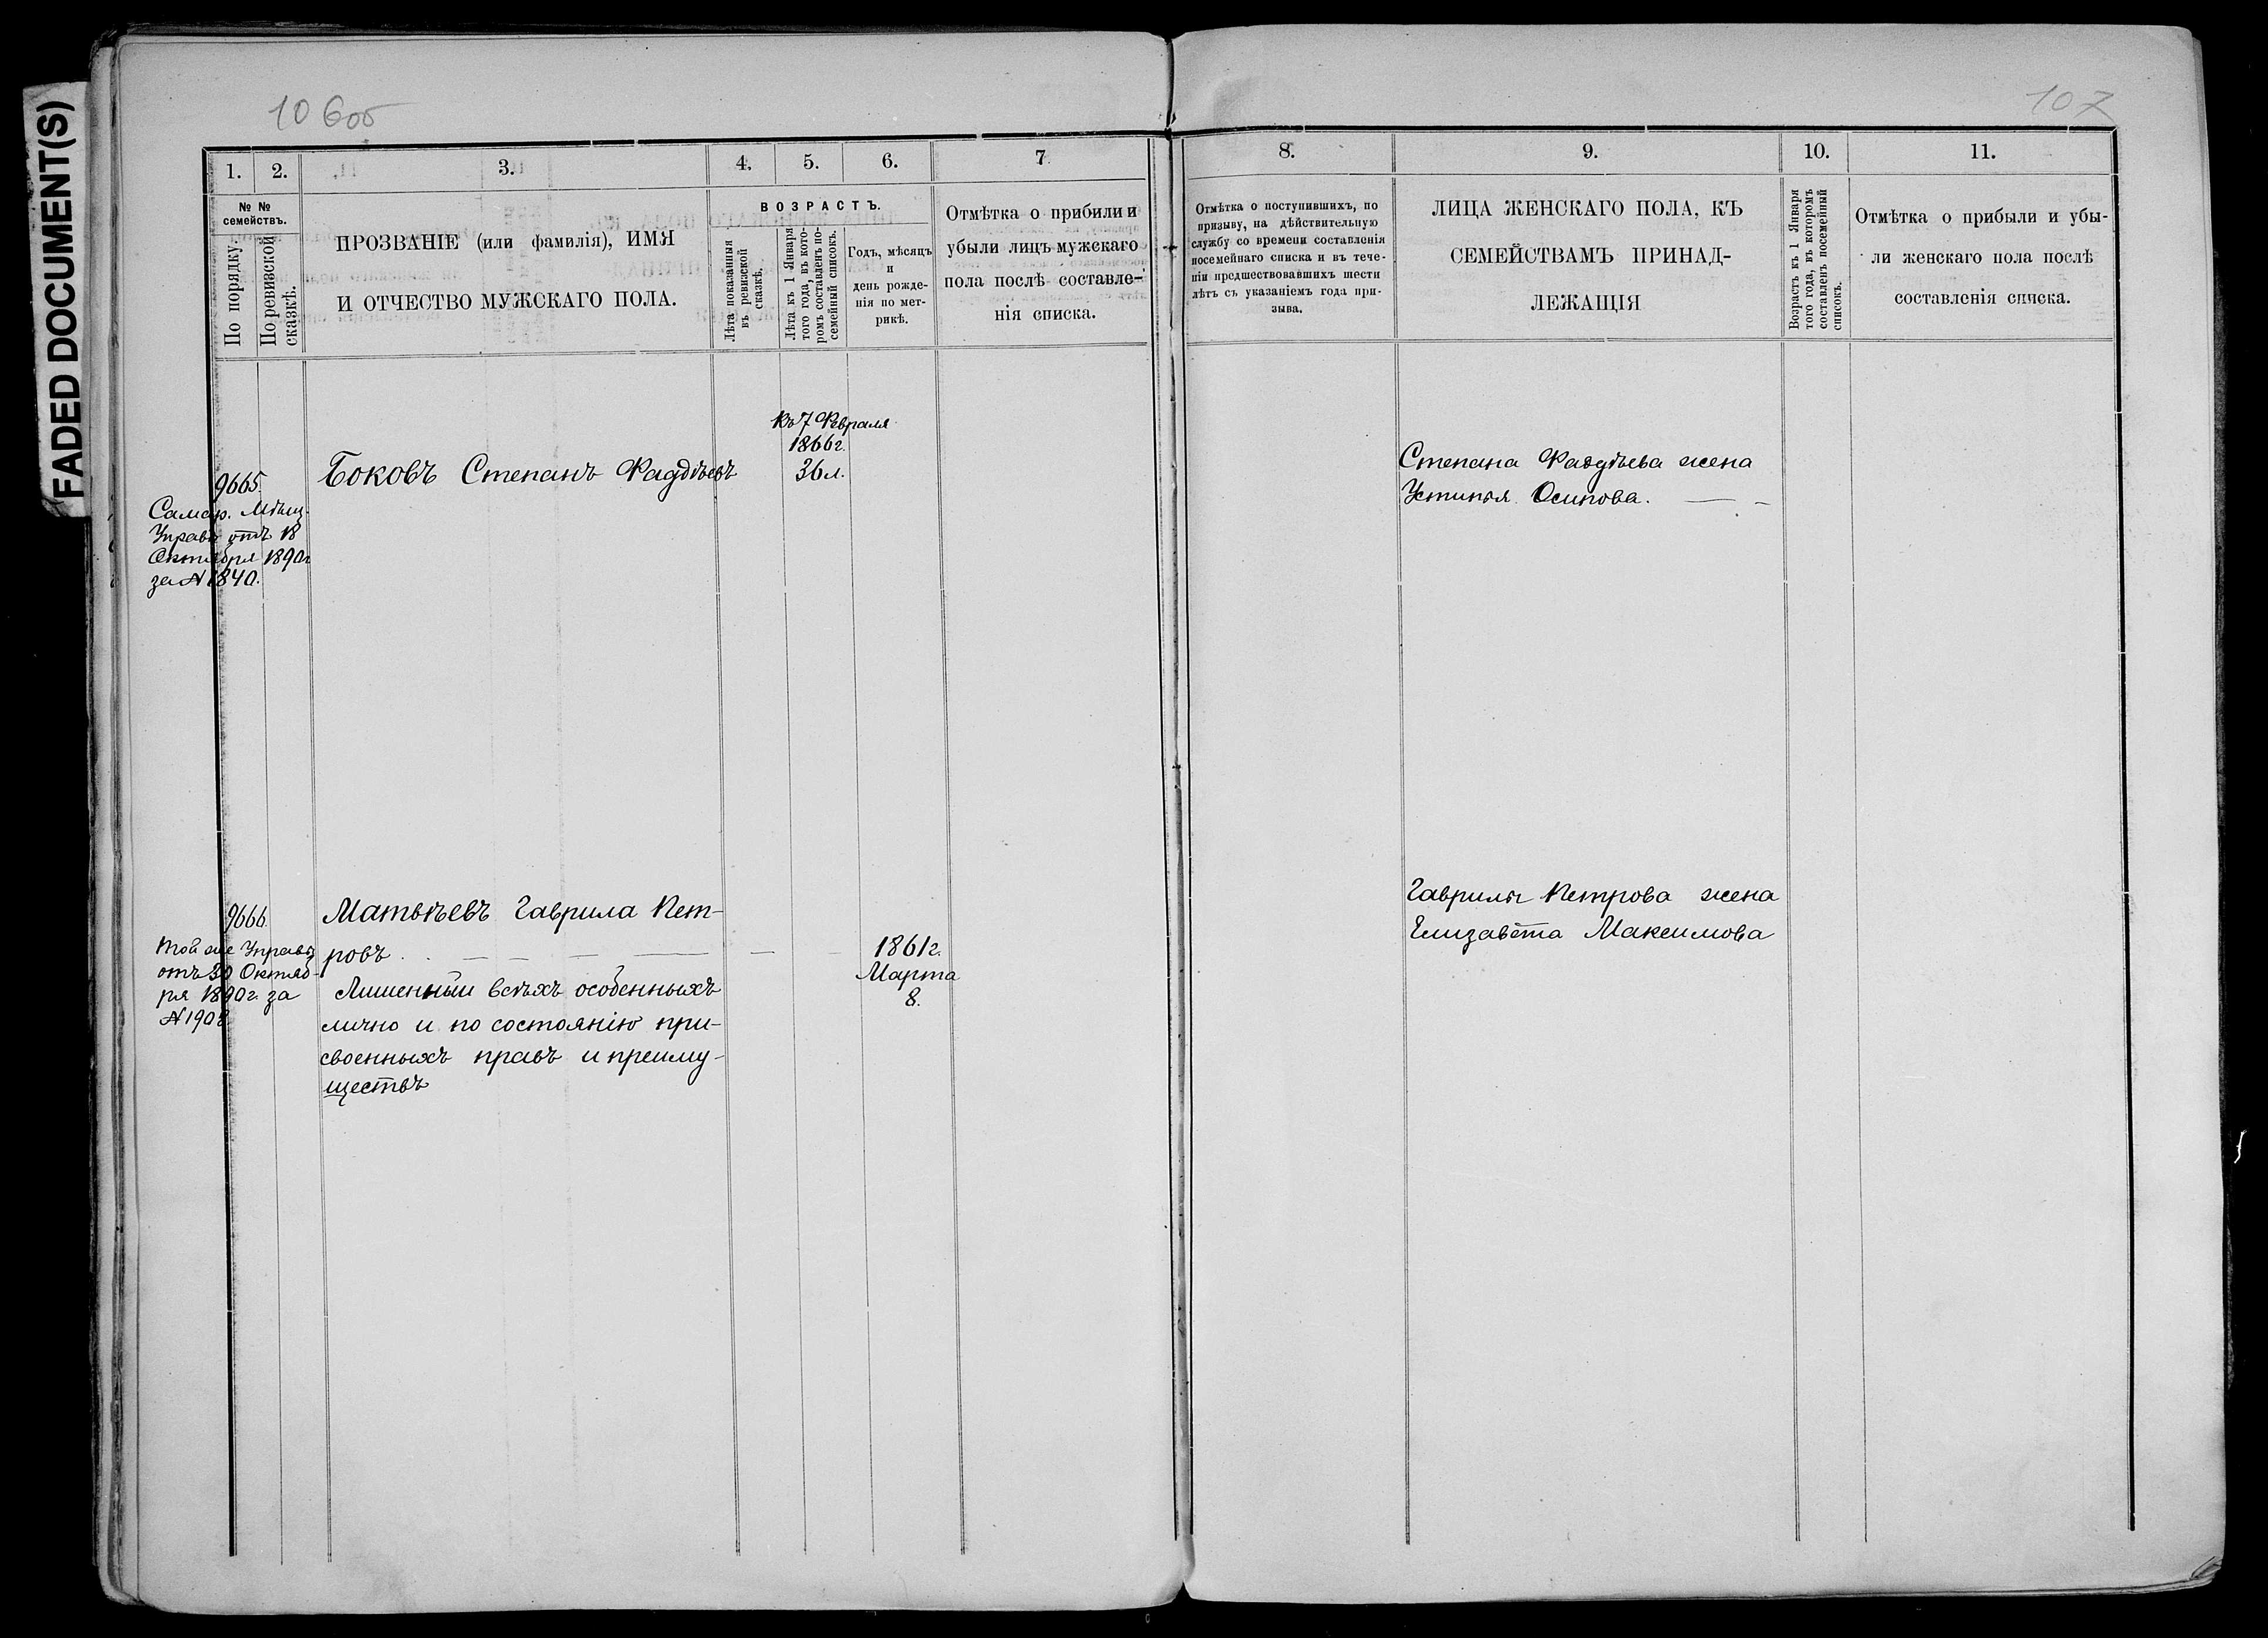 FADED DOCUMENT(S)
107
1. 2. 3. 4. 5. 6. 7
№ № семействъ.
По порядку.
По ревизской сказкѣ.
ПРОЗВАНІЕ (или фамилія), ИМЯ
И ОТЧЕСТВО МУЖСКАГО ПОЛА.
ВОЗРАСТЪ.
Лѣта показанныя
въ ревизской
сказкѣ.
Лѣта къ 1 Января
того года, въ кото-
ромъ составленъ по-
семейный списокъ.
Годъ, мѣсяцъ
и
день рожде-
нія по мет-
рикѣ.
Отмѣтка о прибыли и
убыли лицъ мужскаго
пола послѣ составле-
нія списка.
9665.
Самар. Мѣщ.
Управы отъ 18
Октября 1890г
за № 1840.
Боковъ Степанъ Фаддѣевъ
Къ 7 Февраля
1866г.
36 л.
9666.
Той же Управы
отъ 30 Октяб-
ря 1890г. за
№ 1908
Матвѣевъ Гаврила Пет-
ровъ
Лишенный всѣхъ особенныхъ
лично и по состоянію при-
своенныхъ правъ и преиму-
ществъ
1861г.
Марта
8.
8. 9. 10. 11.
Отмѣтка о поступившихъ, по
призыву, на дѣйствительную
службу со времени составленія
посемейнаго списка и въ тече-
ніи предшествовавшихъ шести
лѣтъ съ указаніемъ года при-
зыва.
ЛИЦА ЖЕНСКАГО ПОЛА, КЪ
СЕМЕЙСТВАМЪ ПРИНАД-
ЛЕЖАЩІЯ
Возрастъ къ 1 Января
того года, въ которомъ
составленъ посемейный
списокъ.
Отмѣтка о прибыли и убы-
ли женскаго пола послѣ
составленія списка.
Степана Фаддѣева жена
Устинья Осипова.
Гаврилы Петрова жена
Елизавета Максимова